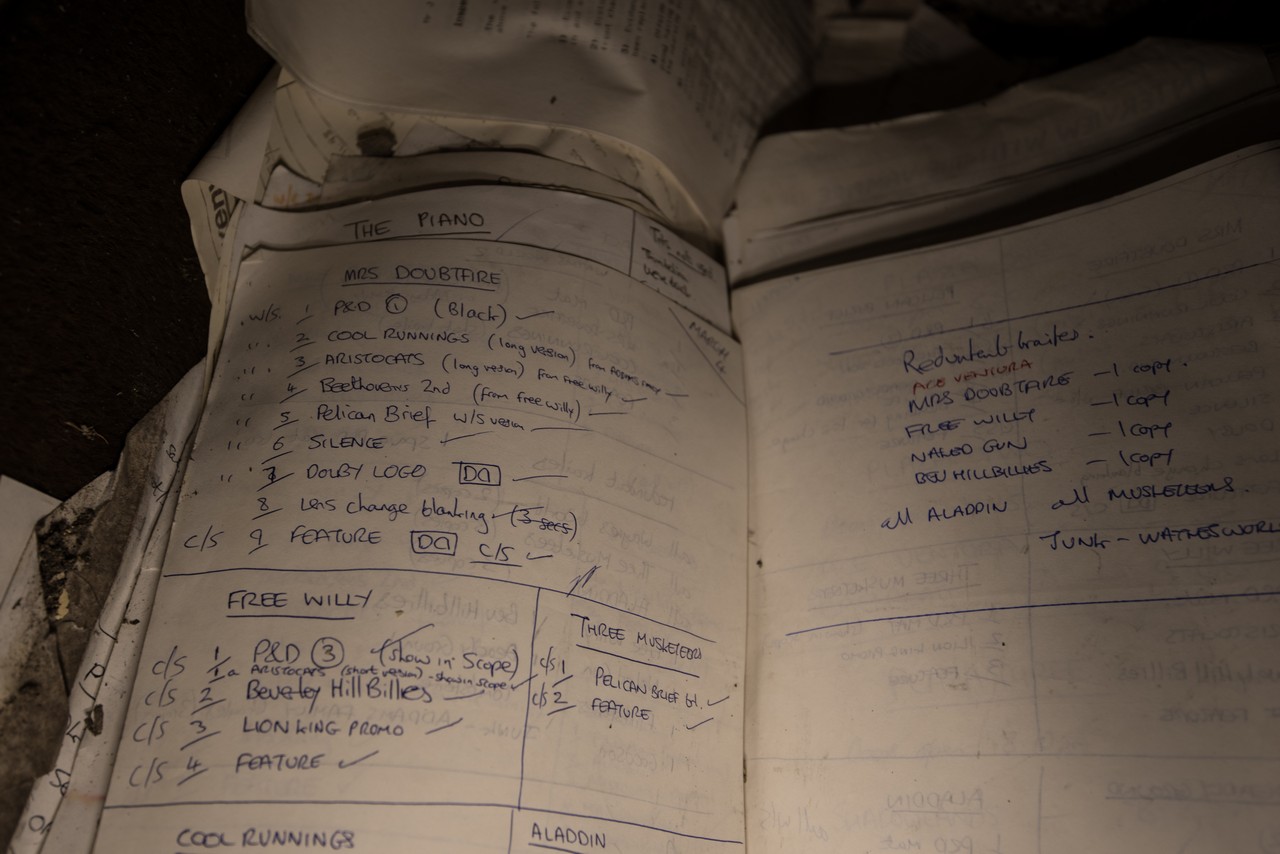 THE PIANO
MRS DOUBTFIRE
w/s 1 P&D ① (Black)
" 2 COOL RUNNINGS (long version) from
" 3 ARISTOCATS (long version) from free willy
" 4 Beethovens 2nd (from free willy)
" 5 Pelican Brief w/s version
" 6 SILENCE
" 7 DOLBY LOGO
8 Lens change blanking (3 secs)
c/s 9 FEATURE c/s
MARCH
FREE WILLY
c/s 1 P&D ③ (show in Scope)
1a ARISTOCATS (short version) - show in scope
c/s 2 Beverley HillBillies
c/s 3 LION KING PROMO
c/s 4 FEATURE
THREE MUSKETEERS
c/s 1 PELICAN BRIEF
c/s 2 FEATURE
COOL RUNNINGS
ALADDIN
Redundant trailers.
ACE VENTURA
MRS DOUBTFIRE - 1 copy.
FREE WILLY - 1 copy
NAKED GUN - 1 copy
BEV HILLBILLIES - 1 copy
all ALADDIN all MUSKETEERS.
JUNK - WAYNESWORL